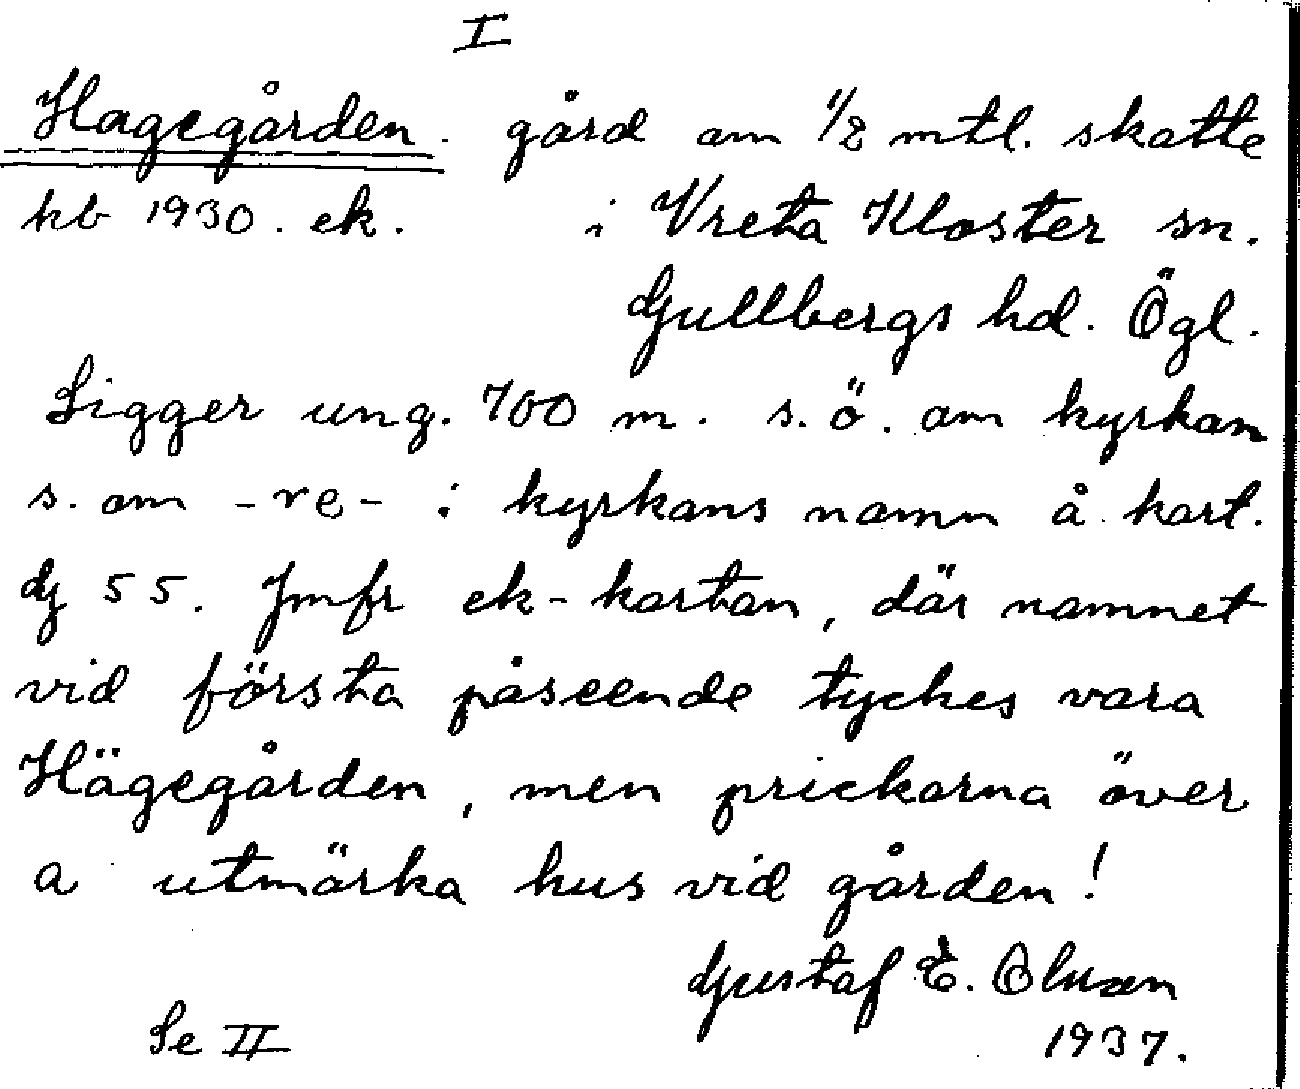 I
Hagegården. gård om 1/2 mtl. skatte
hb 1930. ek. i Vreta Kloster sn.
Gullbergs hd. Ögl.
Ligger ung. 700 m. s.ö. om kyrkan
s. om -re- i kyrkans namn å kart.
G 55. Jmfr ek-kartan, där namnet
vid första påseende tyckes vara
Hägegården, men prickarna över
a utmärka hus vid gården!
Gustaf E. Olsson
Se II 1937.